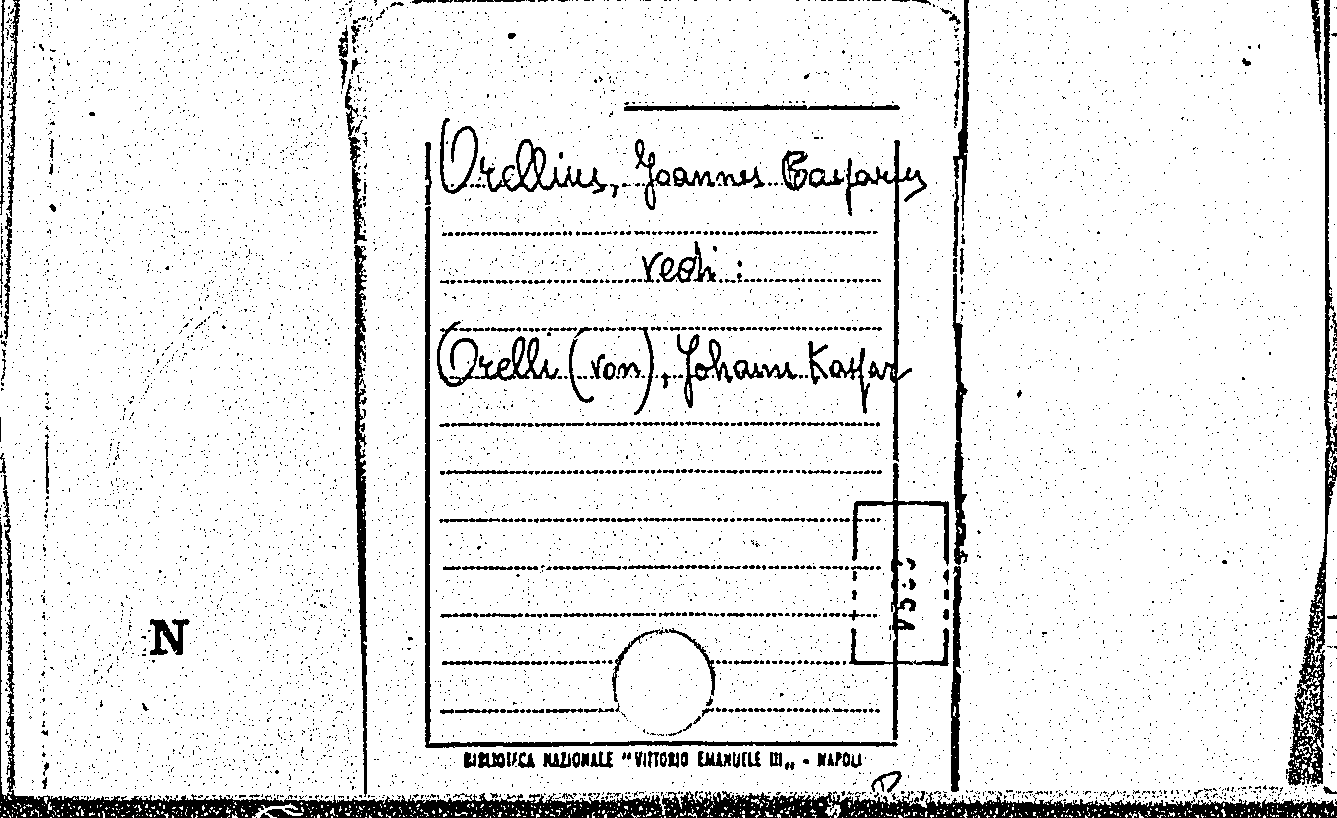 Orellius, Joannes Casparus
vedi :
Orelli (von), Johann Kaspar
N
BIBLIOTECA NAZIONALE "VITTORIO EMANUELE III„ - NAPOLI